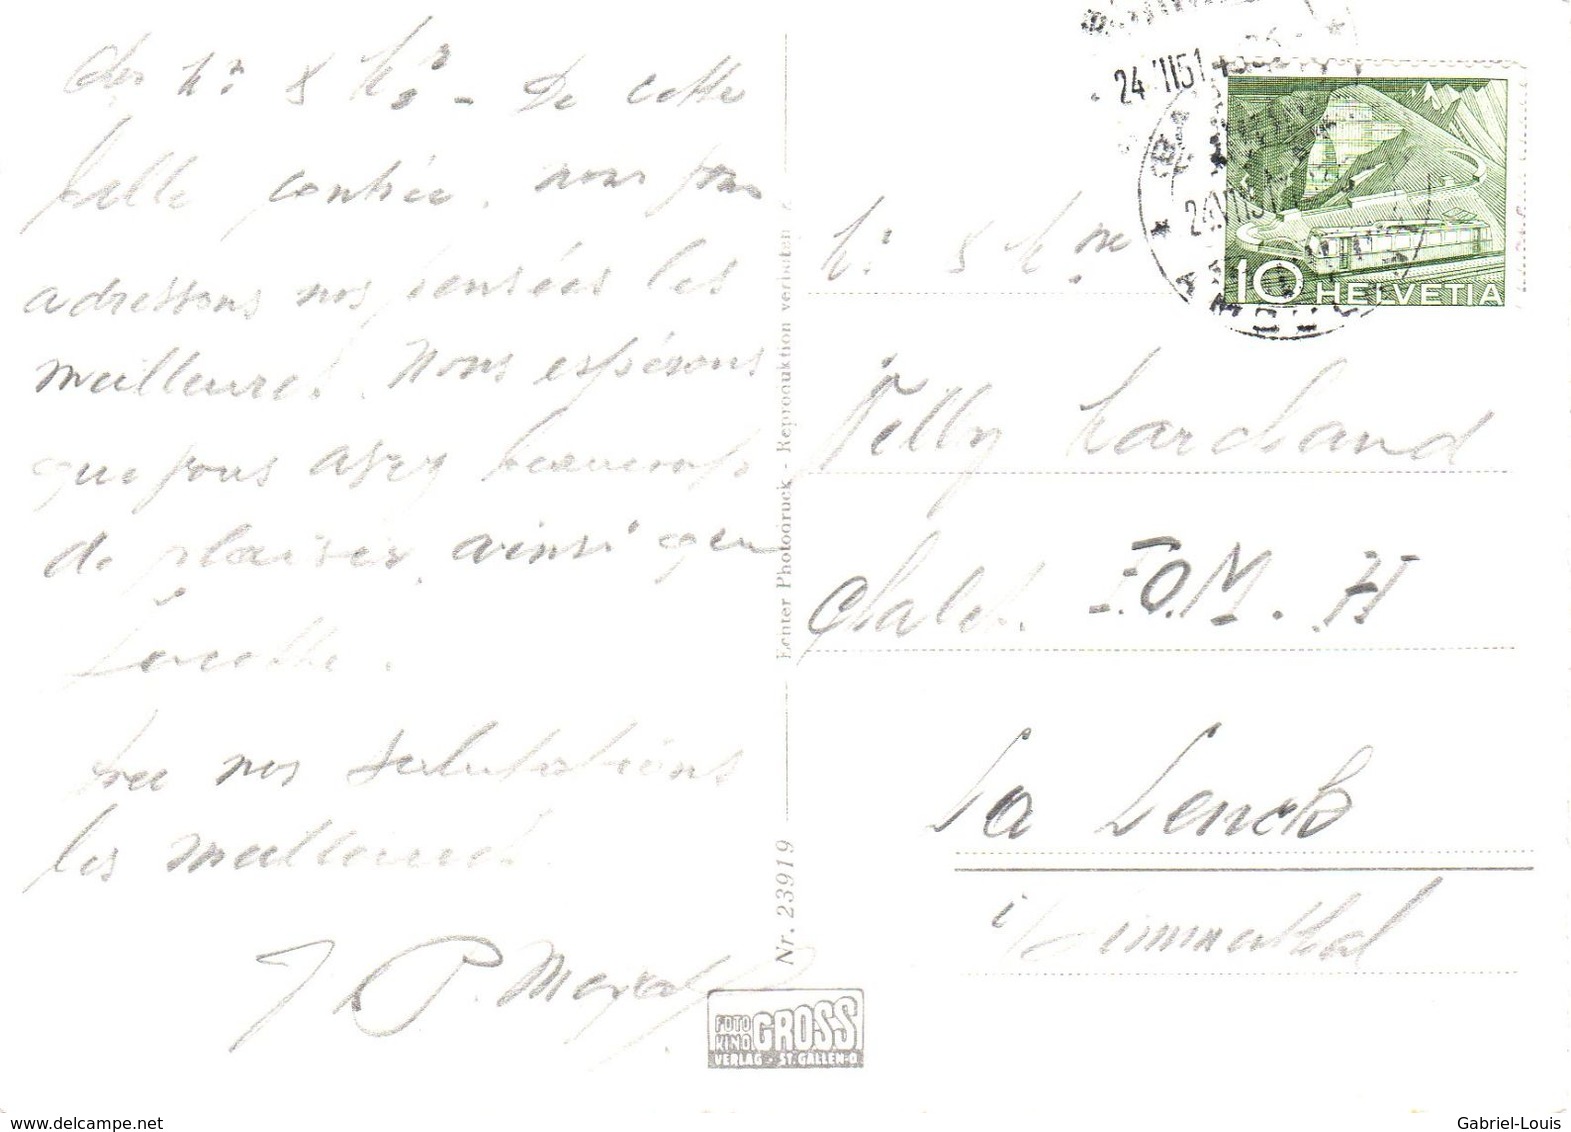 Cher Mr & Me - De cette
belle contrée, nous vous
adressons nos pensées les
meilleures. Nous espérons
que vous avez beaucoup
de plaisir, ainsi que
Josette.
nos salutations
les meilleures
J P.
Nr. 23919
Echter Photodruck - Reproduktion verboten
FOTO KINO GROSS
VERLAG - ST. GALLEN-O
24 VII 51
24 VII 51
10 HELVETIA
Mr & Mme
Marchand
Chalet F.O.M.H
La Lenck
i/Simmenthal
delcampe.net
Gabriel-Louis